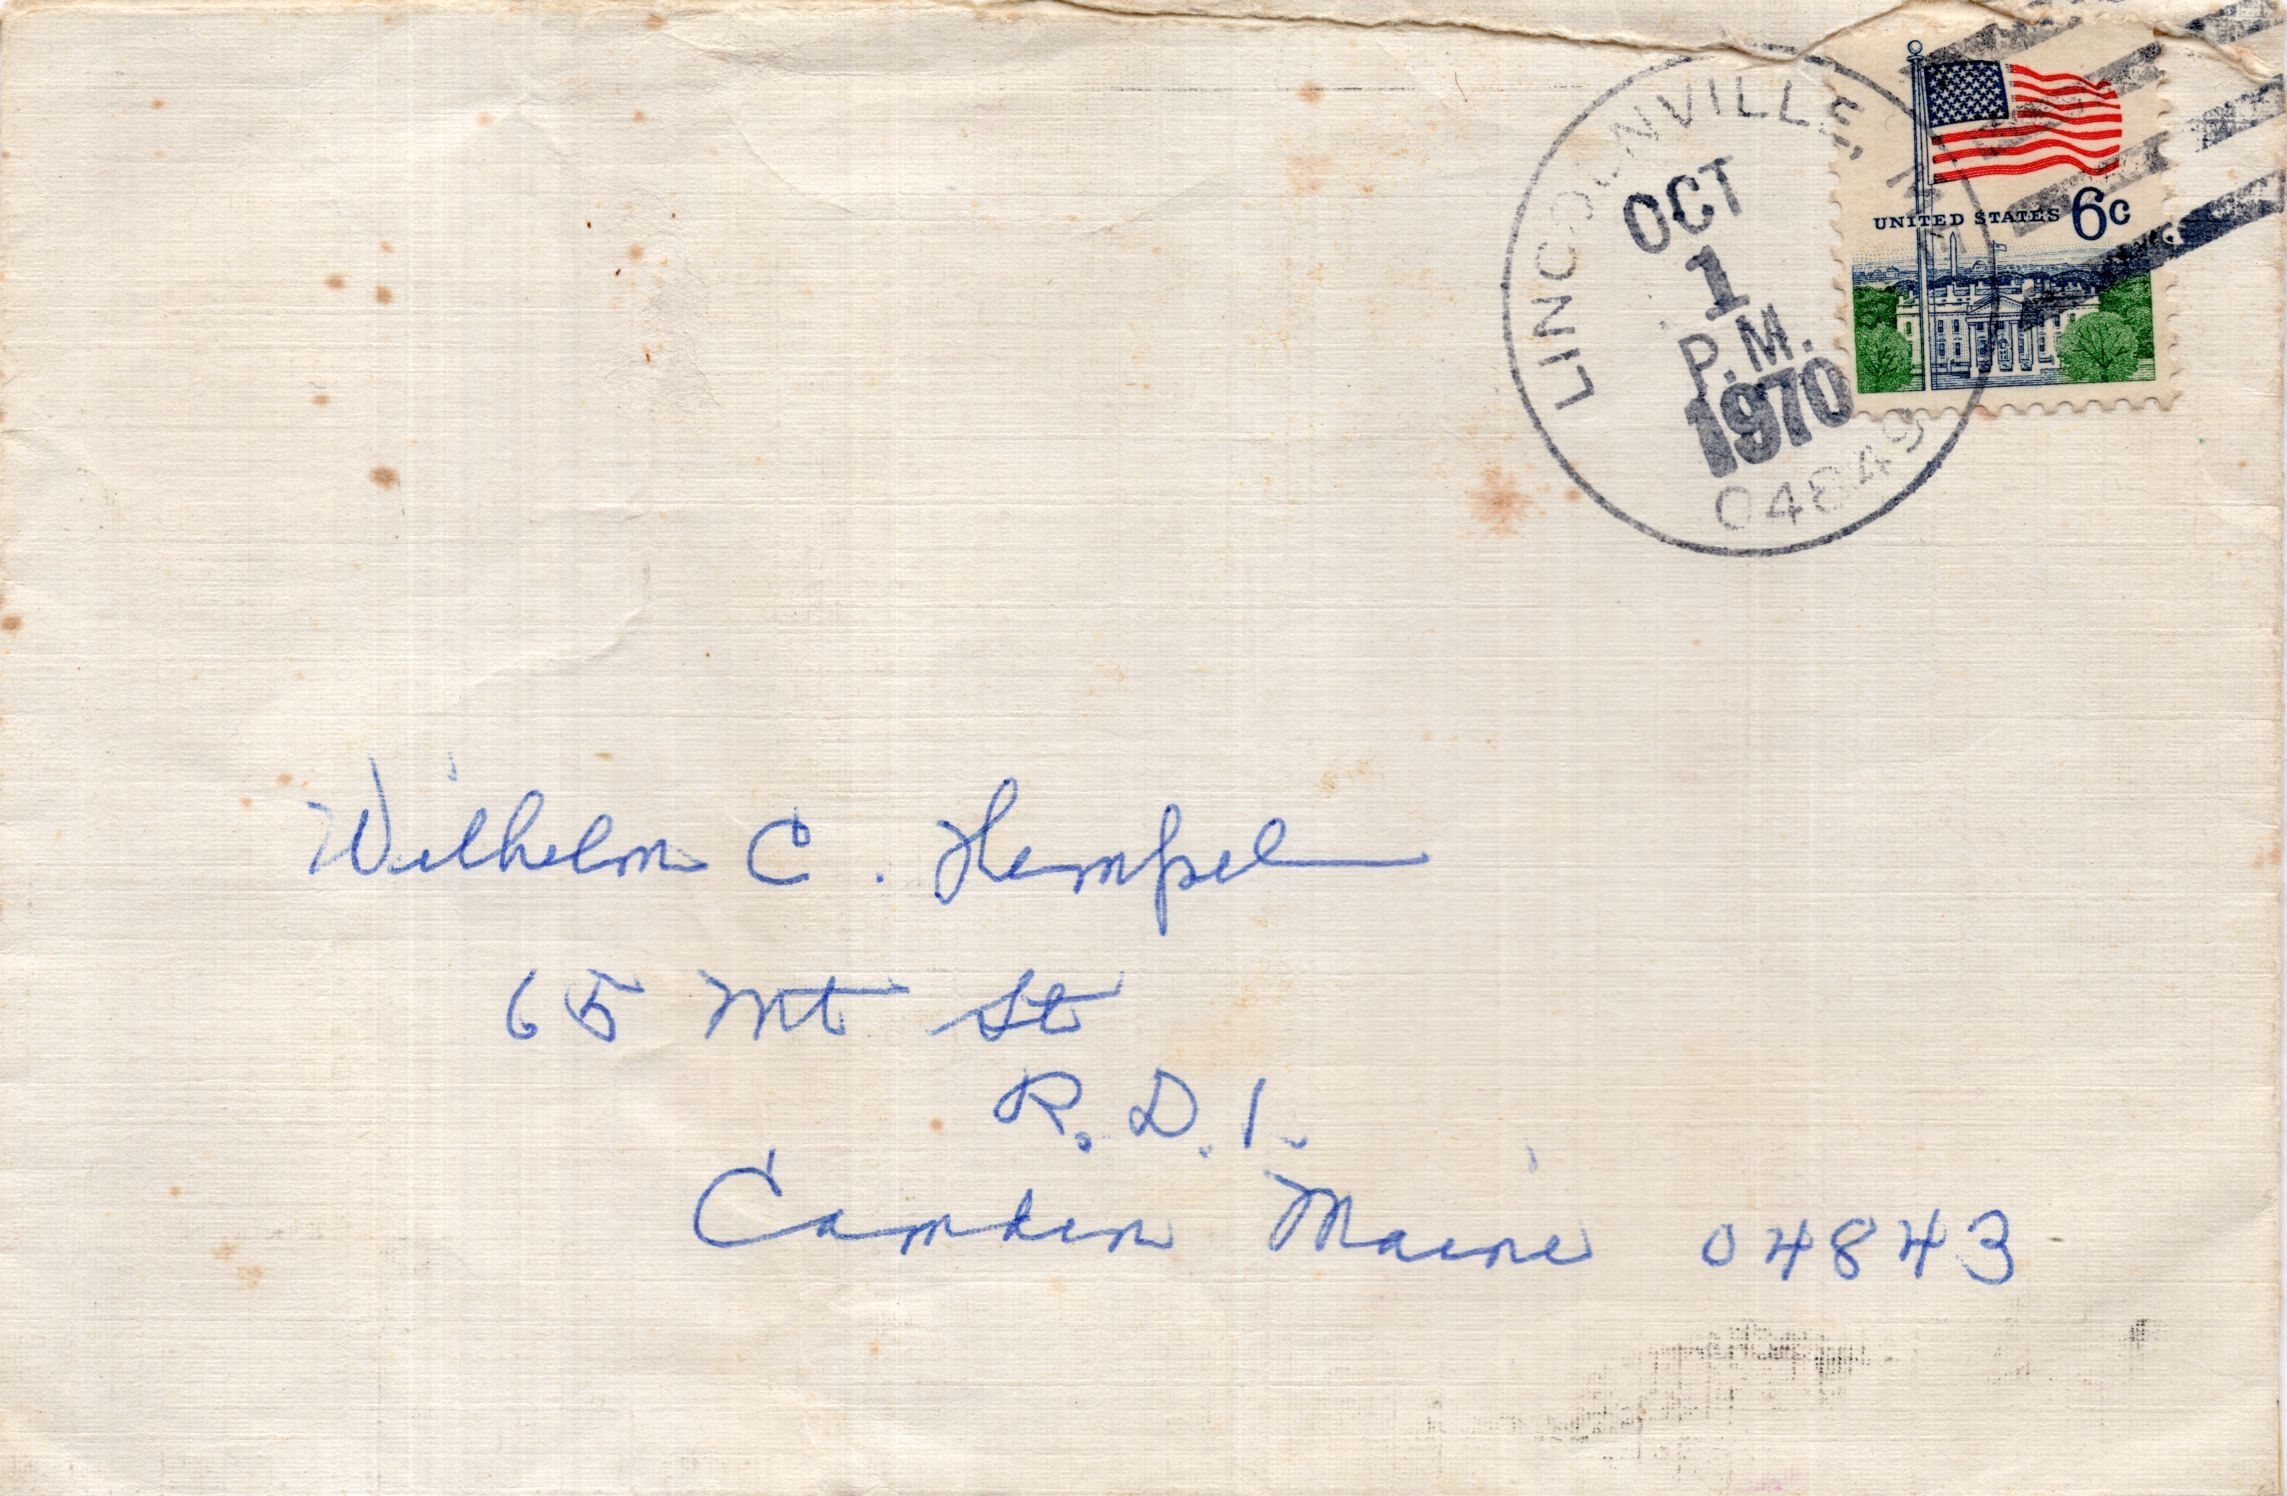 LINCOLNVILLE, ME
OCT
1
P.M.
1970
04849
UNITED STATES 6c
Wilhelm C. Hempel
65 Mt St
R.D.1.
Camden Maine 04843